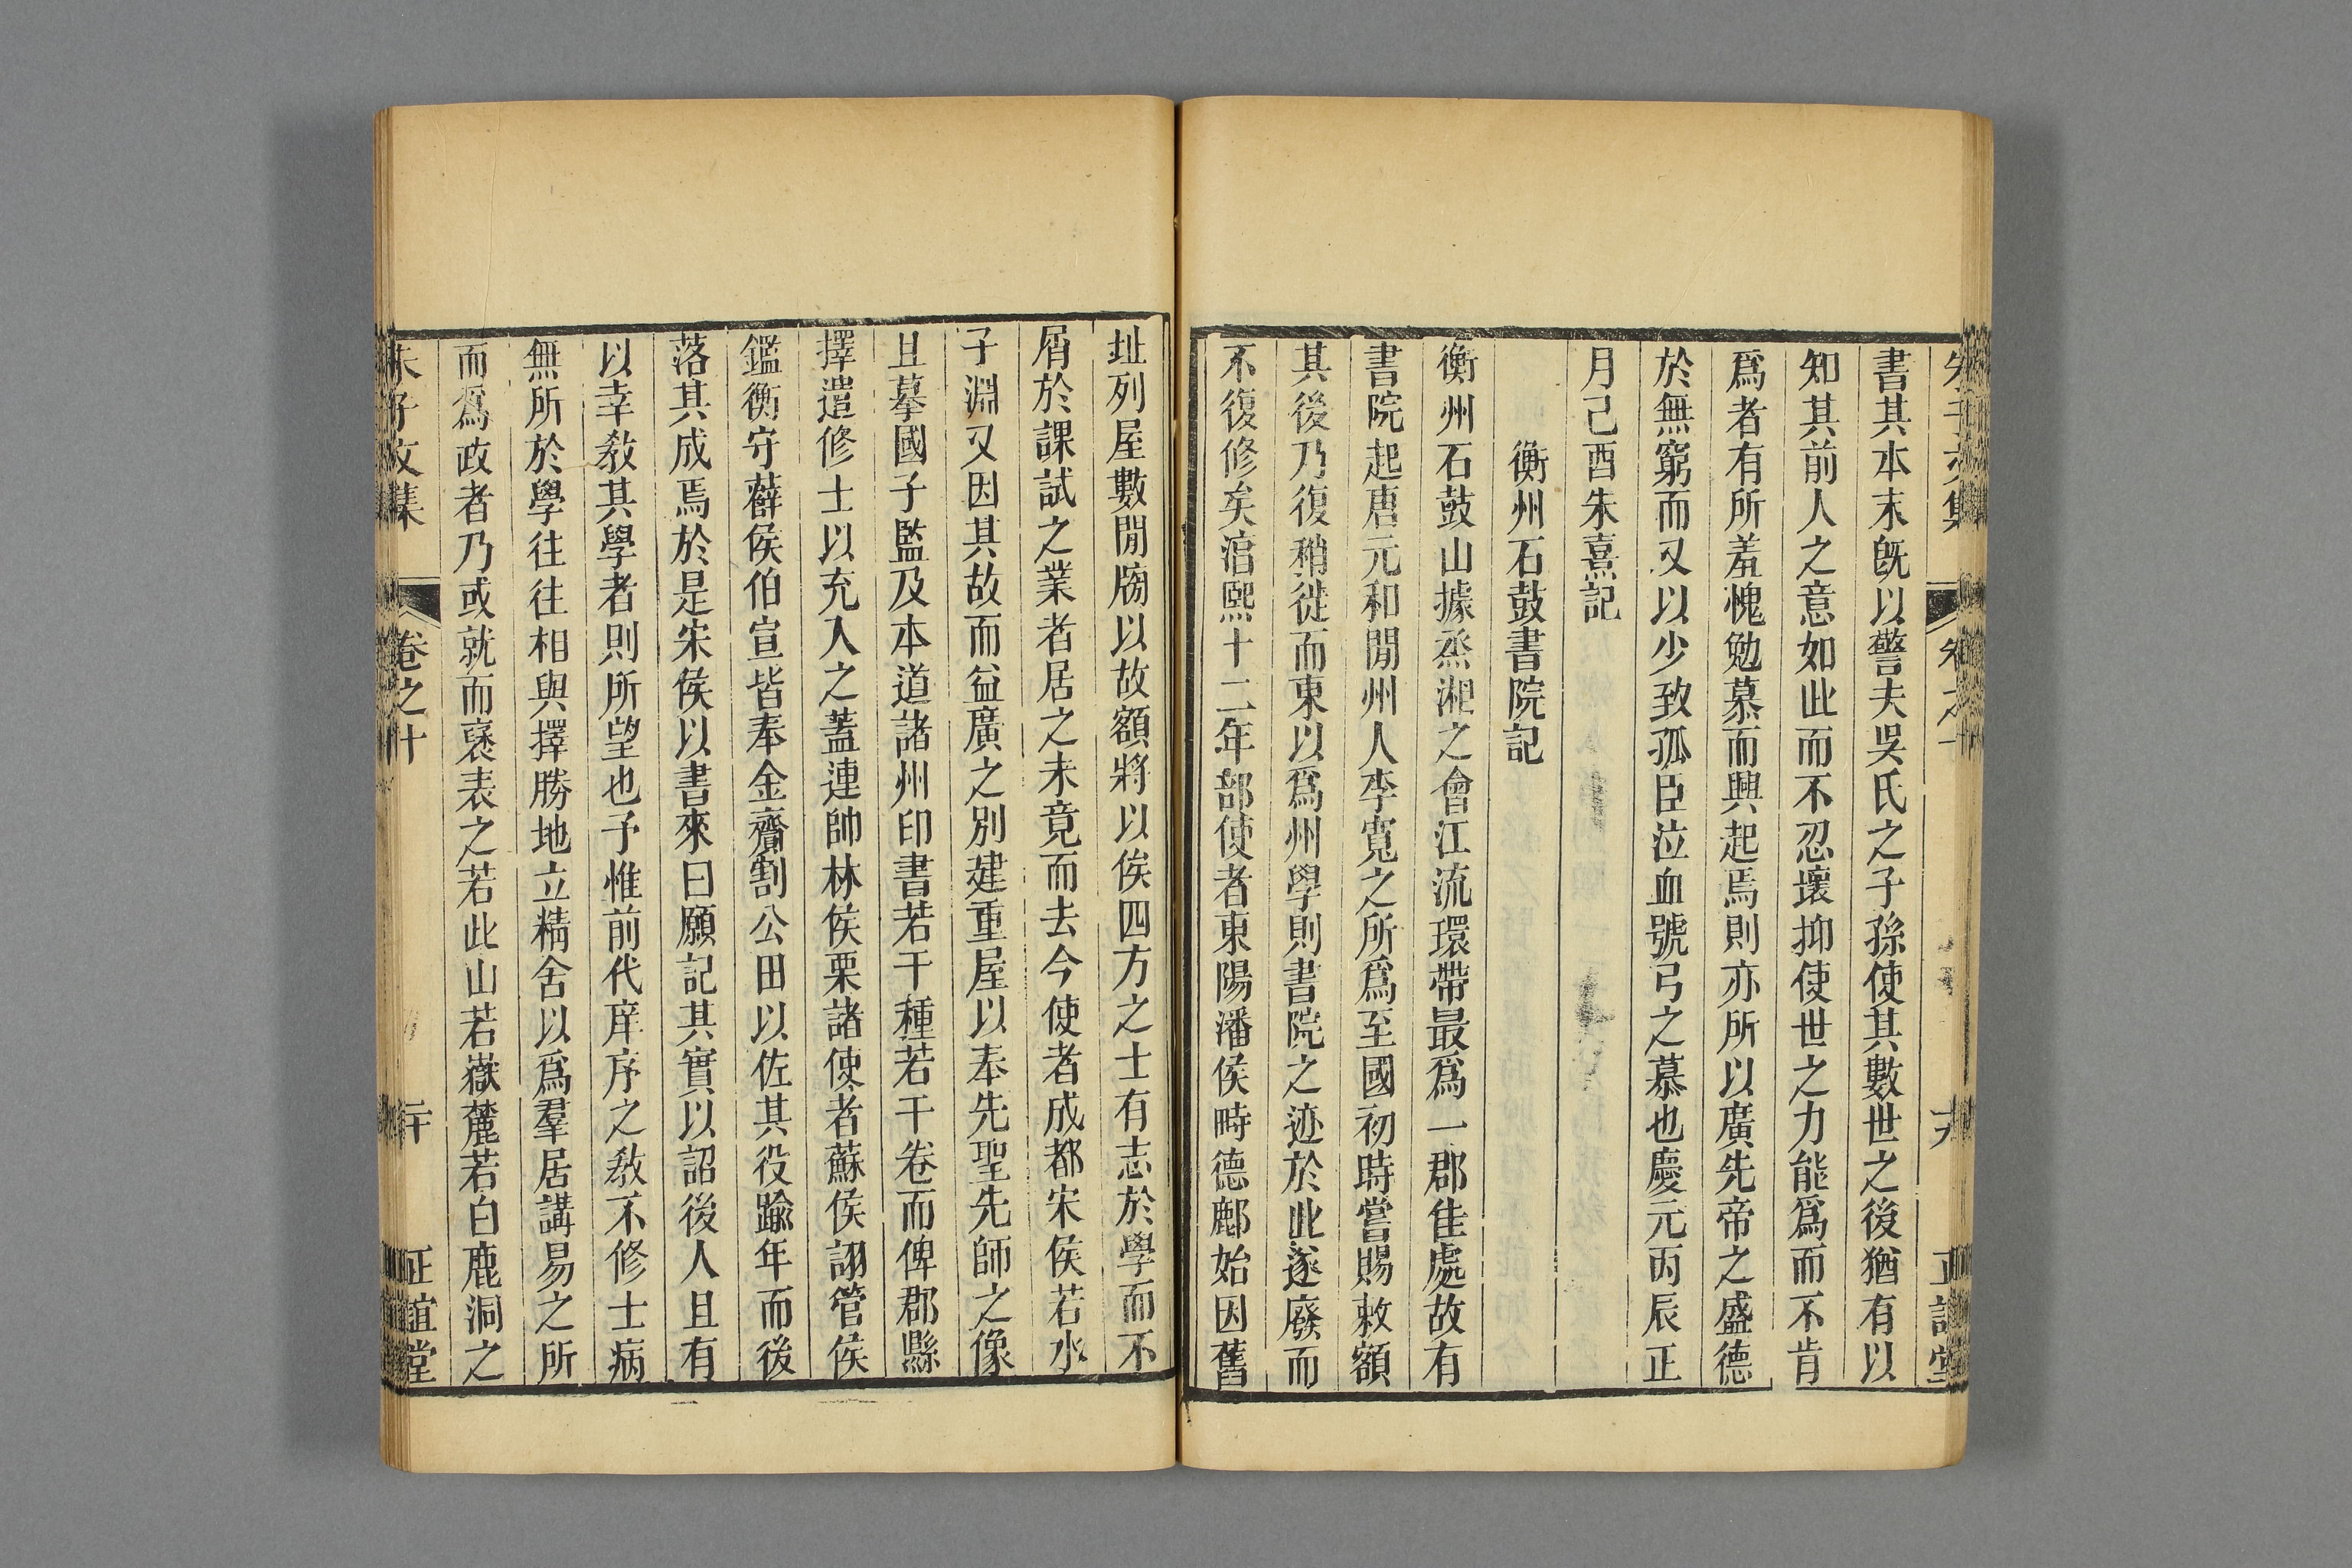 書其本末旣以警夫吳氏之子孫使其數世之後猶有以
知其前人之意如此而不忍壞抑使世之力能爲而不肯
爲者有所羞愧勉慕而興起焉則亦所以廣先帝之盛德
於無窮而又以少致孤臣泣血號弓之慕也慶元丙辰正
月己酉朱熹記
衡州石鼓書院記
衡州石鼓山據烝湘之會江流環帶最爲一郡佳處故有
書院起唐元和閒州人李寬之所爲至國初時嘗賜敕額
其後乃復稍徙而東以爲州學則書院之迹於此遂廢而
不復修矣淳熙十二年部使者東陽潘侯畤德鄜始因舊
址列屋數閒牓以故額將以俟四方之士有志於學而不
屑於課試之業者居之未竟而去今使者成都宋侯若水
子淵又因其故而益廣之別建重屋以奉先聖先師之像
且摹國子監及本道諸州印書若干種若干卷而俾郡縣
擇遣修士以充入之蓋連帥林侯栗諸使者蘇侯詡管侯
鑑衡守薛侯伯宣皆奉金齎割公田以佐其役踰年而後
落其成焉於是宋侯以書來曰願記其實以詔後人且有
以幸敎其學者則所望也予惟前代庠序之敎不修士病
無所於學往往相與擇勝地立精舍以爲羣居講易之所
而爲政者乃或就而襃表之若此山若嶽麓若白鹿洞之
朱子文集 卷之十 二十 正誼堂